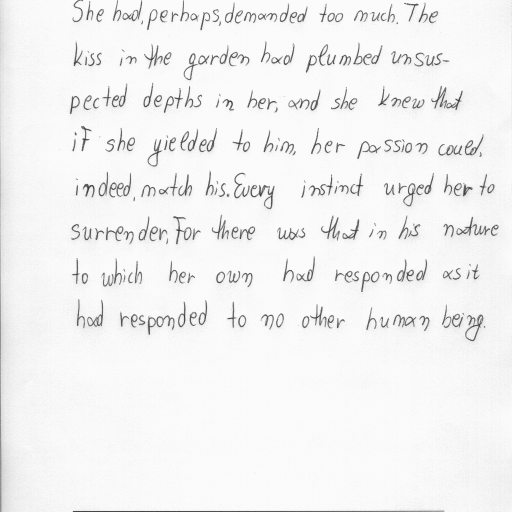 She had, perhaps, demanded too much. The
kiss in the garden had plumbed unsus-
pected depths in her, and she knew that
if she yielded to him, her passion could,
indeed, match his. Every instinct urged her to
surrender, For there was that in his nature
to which her own had responded as it
had responded to no other human being.